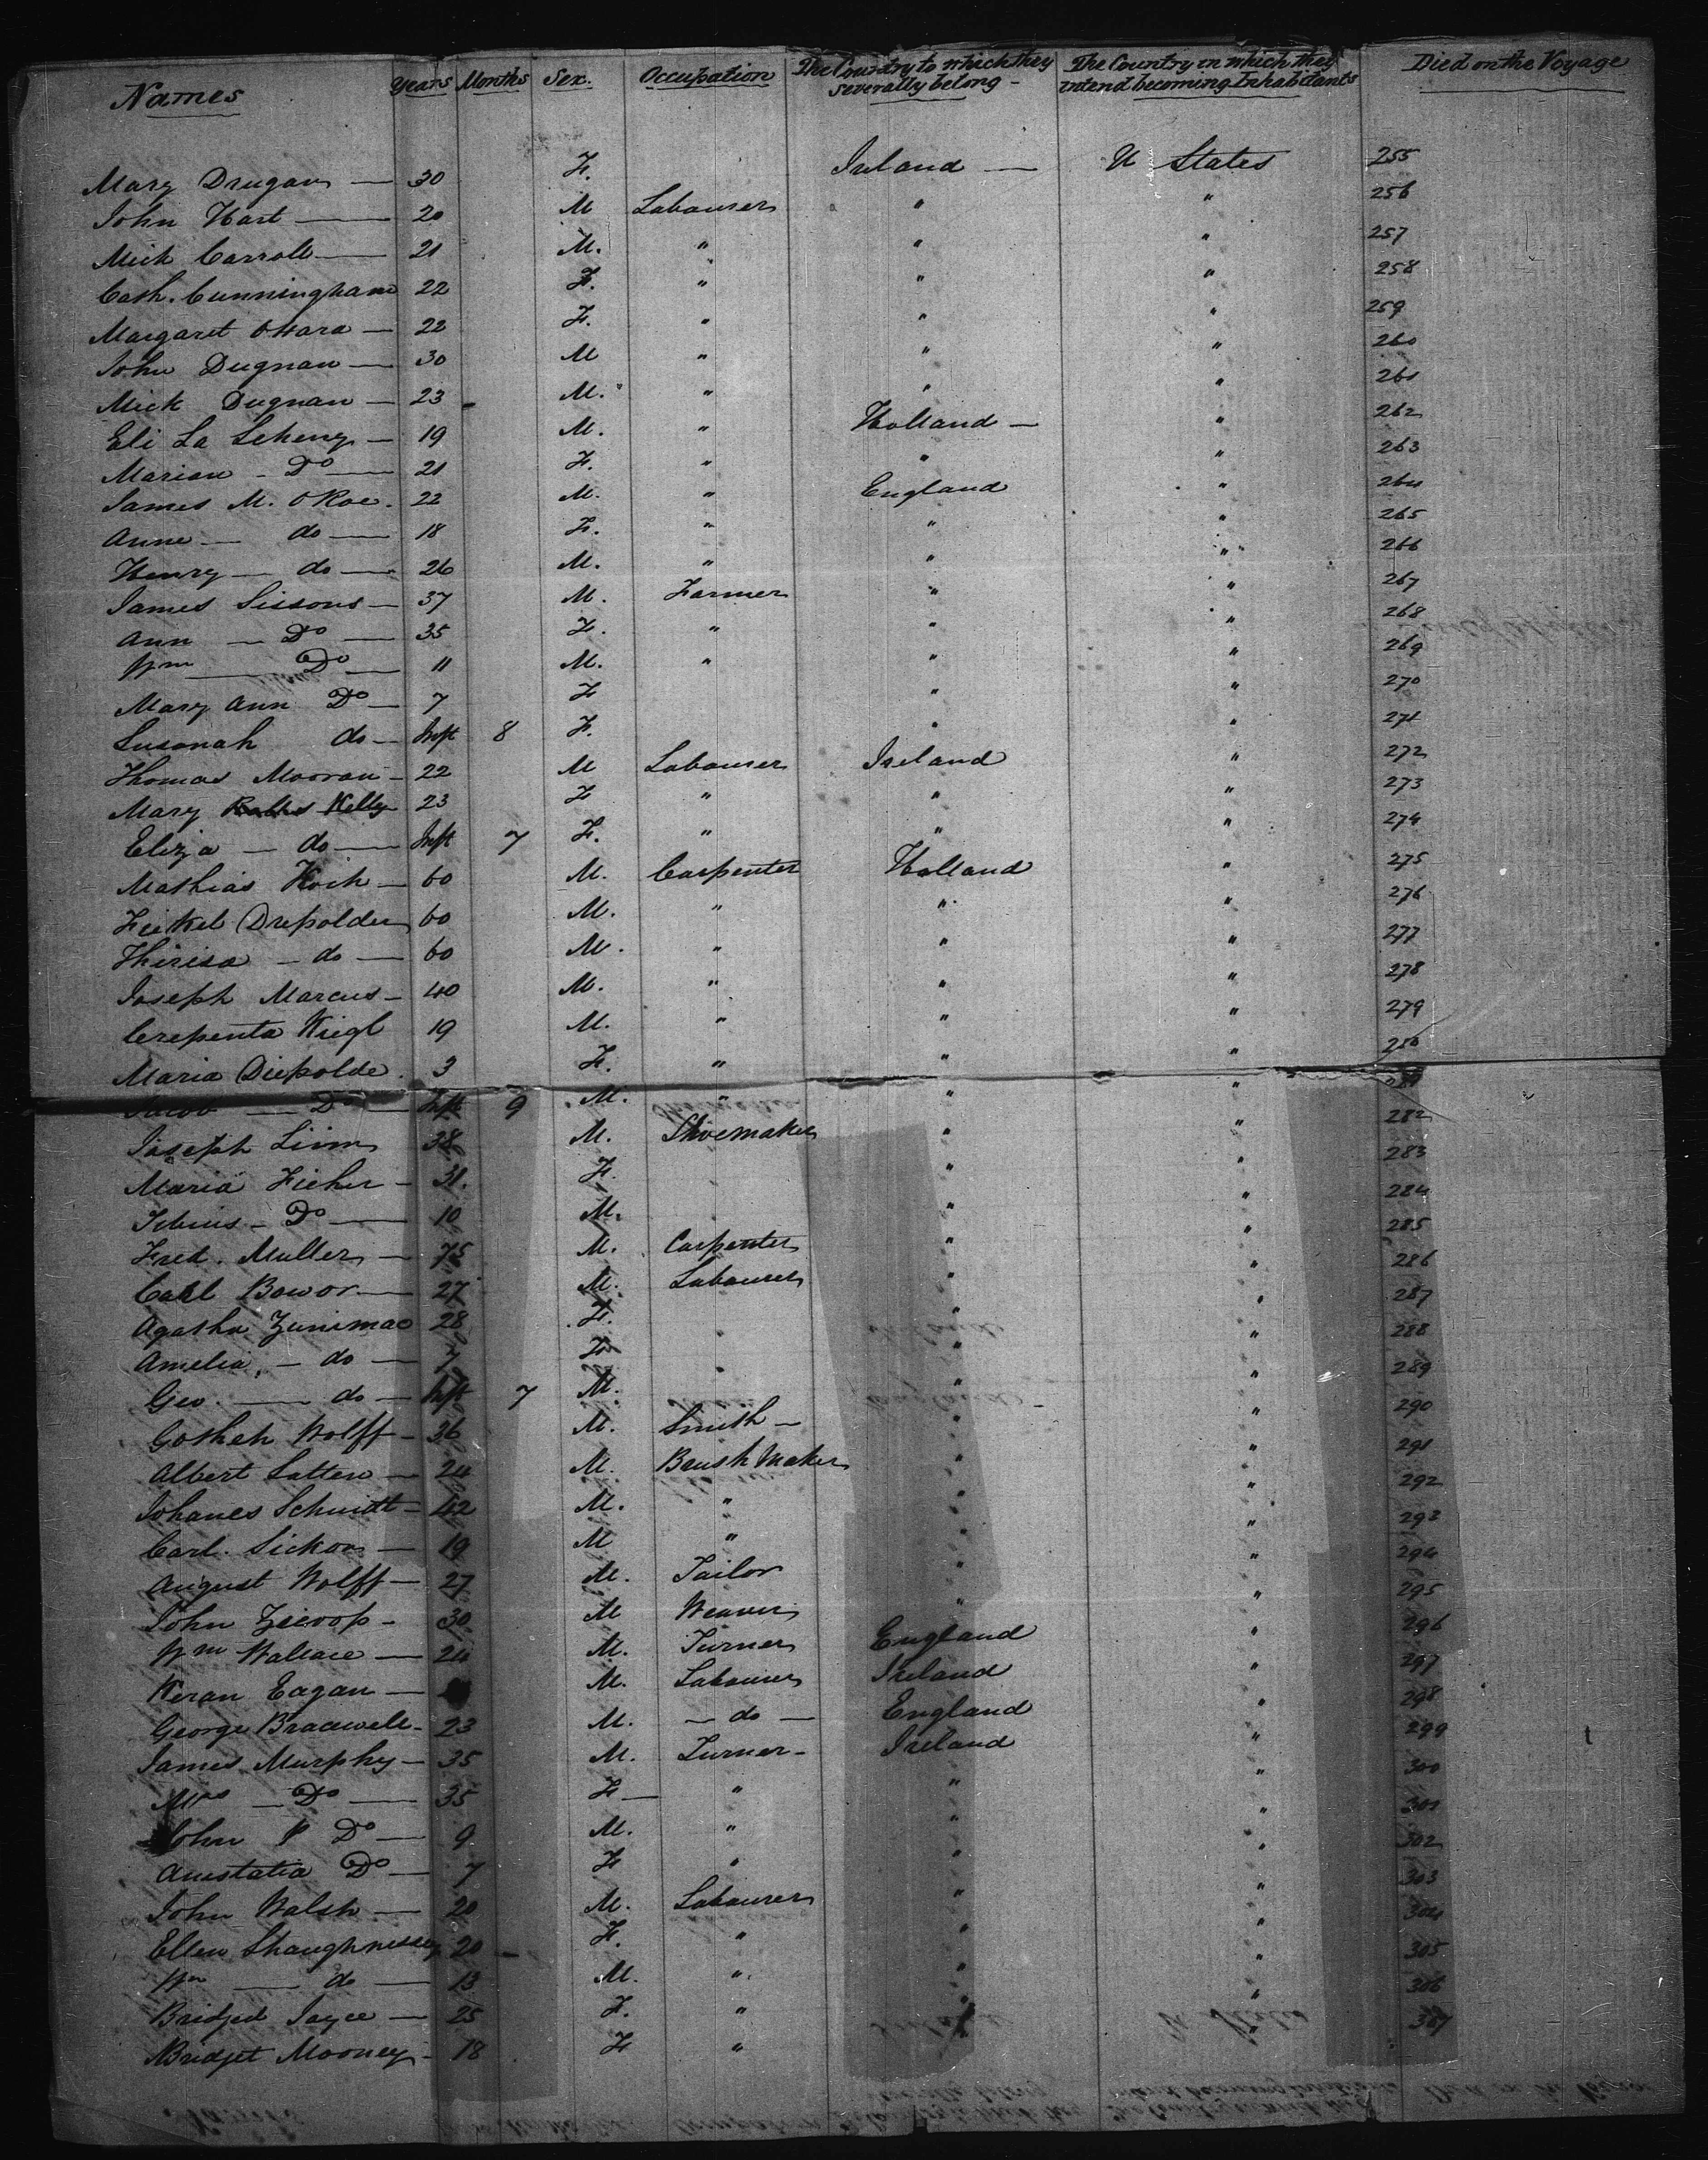 Names Years Months Sex. Occupation The Country to which they severally belong - The Country in which they intend becoming Inhabitants Died on the Voyage
Mary Drugan — 30 F. Ireland — U States 255
John Hart — 20 M Labourer " " 256
Mick Carroll — 21 M. " " " 257
Cath. Cunningham 22 F. " " " 258
Margaret OHara — 22 F. " " " 259
John Dugnan — 30 M " " " 260
Mick Dugnan — 23 M. " " " 261
Eli La Scheny — 19 M. " Holland — " 262
Marian - Do — 21 F. " " " 263
James M. ORoe. 22 M. " England " 264
Anne — do — 18 F. " " " 265
Henry — do — 26 M. " " " 266
James Sissons — 37 M. Farmer " " 267
Ann — Do — 35 F. " " " 268
Wm — Do — 11 M. " " " 269
Mary Ann Do — 7 F " " 270
Susanah do — Inft 8 F. " " 271
Thomas Mooran — 22 M Labourer Ireland " 272
Mary Kelly 23 F " " " 273
Eliza — do — Inft 7 F. " " " 274
Mathias Koch — 60 M. Carpenter Holland " 275
Drepolder 60 M. " " " 276
Thirisa — do — 60 M. " " " 277
Joseph Marcus — 40 M. " " " 278
Crepenta Kiegl 19 M. " " " 279
Maria Diepolde. 3 F. " " " 280
Jacob — Do — Inft 9 M. " " " 281
Joseph Linn 38 M. Shoemaker " " 282
Maria Ficher — 31. F. " " 283
Do — 10 M. " " 284
Fred. Muller — 75 M. Carpenter " " 285
Carl Bowor — 27 M. Labourer " " 286
Agatha Zunimao 28 F. " " " 287
Amelia, — do — 7 F " " " 288
Geo. — do — Inft 7 M. " " 289
Gotheh Wolff — 36 M. Smith — " " 290
Albert Latten — 24 M. Brush Maker " " 291
Johanes Schmidt — 42 M. " " " 292
Carl. Sickon — 19 M " " " 293
August Wolff — 27 M. Tailor " " 294
John Zieroop — 30 M Weaver " " 295
Wm Wallace — 24 M. Turner England " 296
Keran Eagan — M. Labourer Ireland " 297
George Bracewell — 23 M. — do — England " 298
James Murphy — 35 M. Turner — Ireland " 299
Mrs — Do — 35 F — " " " 300
John P Do — 9 M. " " " 301
Anestatia Do — 7 F " " " 302
John Walsh — 20 M. Labourer " " 303
Ellen Shaughnessy 20 — F. " " " 304
Wm — do — 13 M. " " " 305
Bridged Joyce — 25 F. " " " 306
Bridget Mooney — 18 F " " 307